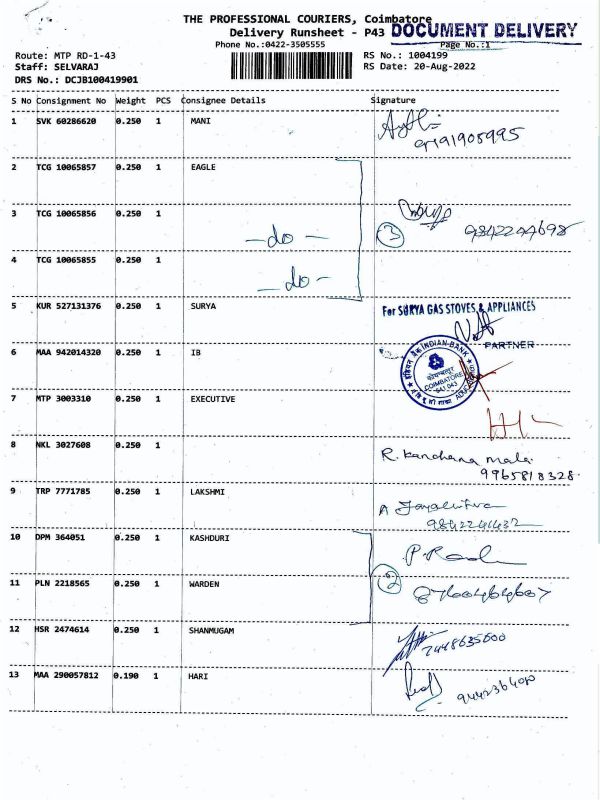 THE PROFESSIONAL COURIERS, Coimbatore
DOCUMENT DELIVERY
Delivery Runsheet - P43
Phone No.:0422-3505555
Page No.:1
Route: MTP RD-1-43
RS No.: 1004199
Staff: SELVARAJ
RS Date: 20-Aug-2022
DRS No.: DCJB100419901
S No Consignment No Weight PCS Consignee Details Signature
1 SVK 60286620 0.250 1 MANI
2 TCG 10065857 0.250 1 EAGLE
3 TCG 10065856 0.250 1
-do- 3 9842244698
4 TCG 10065855 0.250 1
-do-
5 KUR 527131376 0.250 1 SURYA For SURYA GAS STOVES & APPLIANCES
PARTNER
6 MAA 942014320 0.250 1 IB
INDIAN-BANK
COIMBATORE
641 043
7 MTP 3003310 0.250 1 EXECUTIVE
8 NKL 3027608 0.250 1 R. Kanchana mala
9965818328
9 TRP 7771785 0.250 1 LAKSHMI
9842241432
10 DPM 364051 0.250 1 KASHDURI
11 PLN 2218565 0.250 1 WARDEN 2 8760464607
12 HSR 2474614 0.250 1 SHANMUGAM 7448635600
13 MAA 290057812 0.190 1 HARI